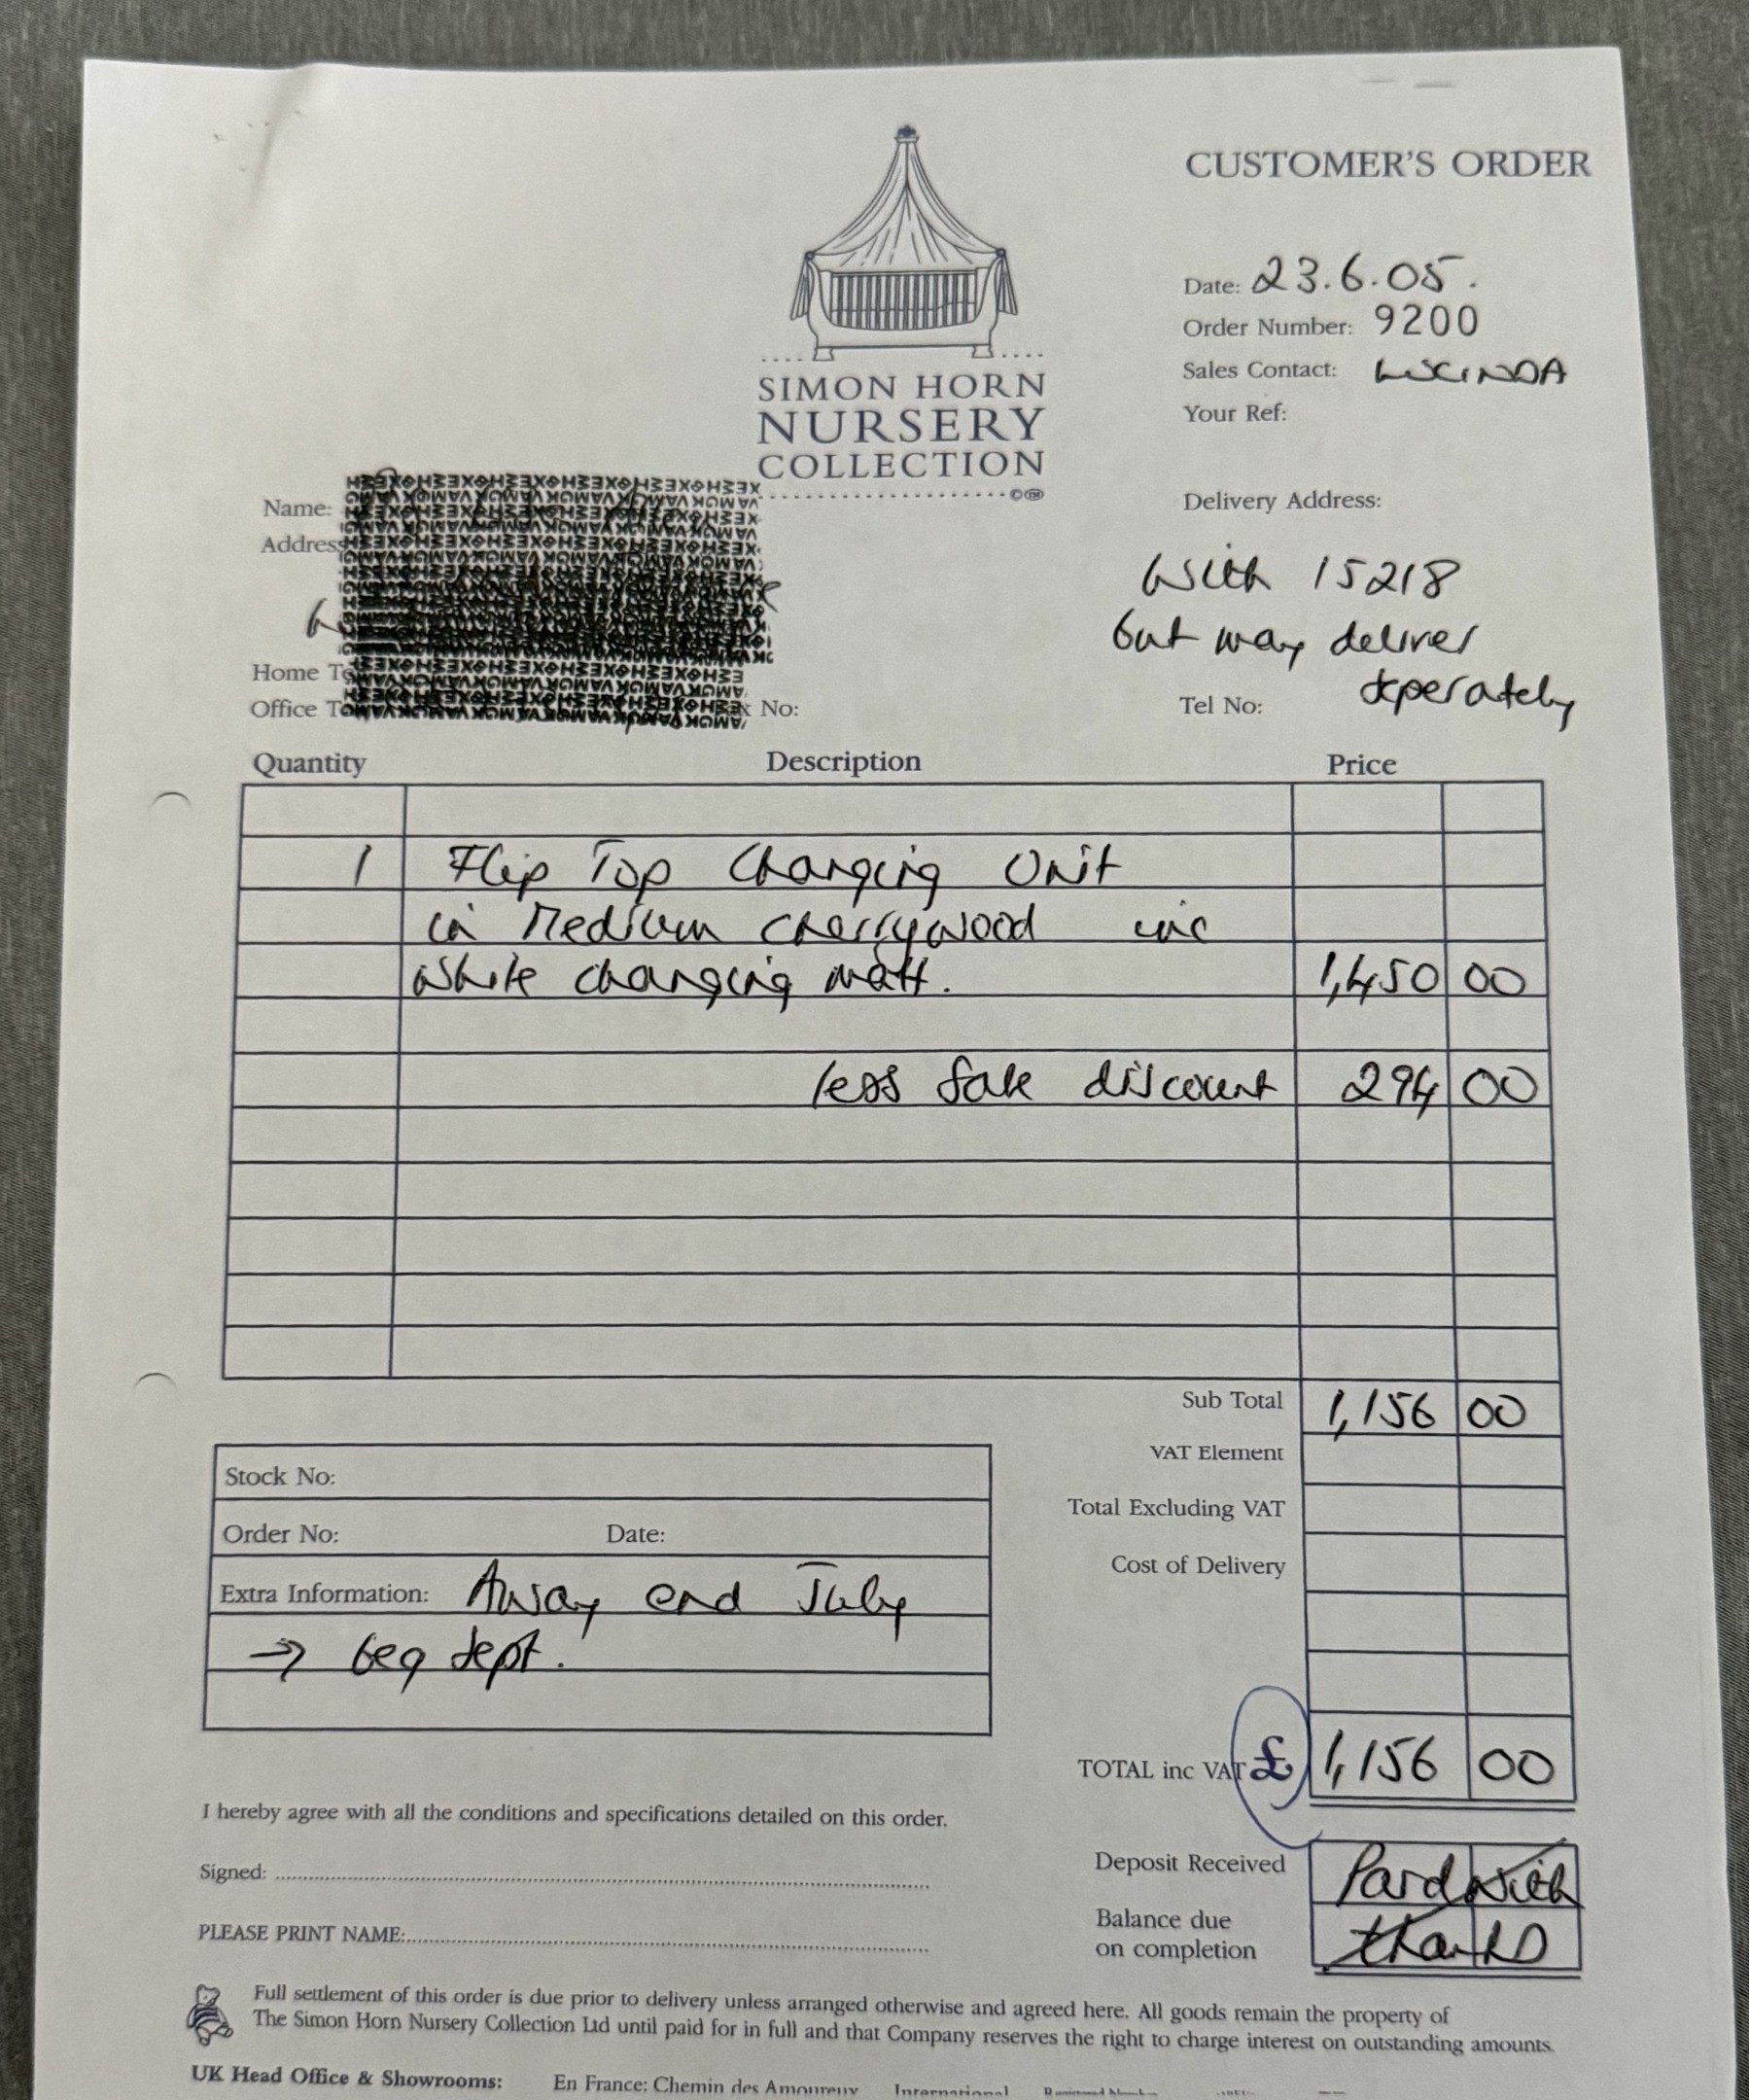 CUSTOMER'S ORDER
SIMON HORN
NURSERY
COLLECTION
©™
Date: 23.6.05.
Order Number: 9200
Sales Contact: LUCINDA
Your Ref:
Name:
Address
Home Te
Office Te
x No:
Delivery Address:
With 15218
but may deliver
seperately
Tel No:
Quantity Description Price
1 Flip Top Changing Unit
in Medium Cherrywood inc
white changing matt. 1,450 00
less sale discount 294 00
Sub Total 1,156 00
VAT Element
Total Excluding VAT
Cost of Delivery
TOTAL inc VAT £ 1,156 00
Stock No:
Order No: Date:
Extra Information: Away end July
→ beg sept.
I hereby agree with all the conditions and specifications detailed on this order.
Signed:
PLEASE PRINT NAME:
Deposit Received Paid with
Balance due
on completion thanks
Full settlement of this order is due prior to delivery unless arranged otherwise and agreed here. All goods remain the property of
The Simon Horn Nursery Collection Ltd until paid for in full and that Company reserves the right to charge interest on outstanding amounts.
UK Head Office & Showrooms: En France: Chemin des Amoureux International